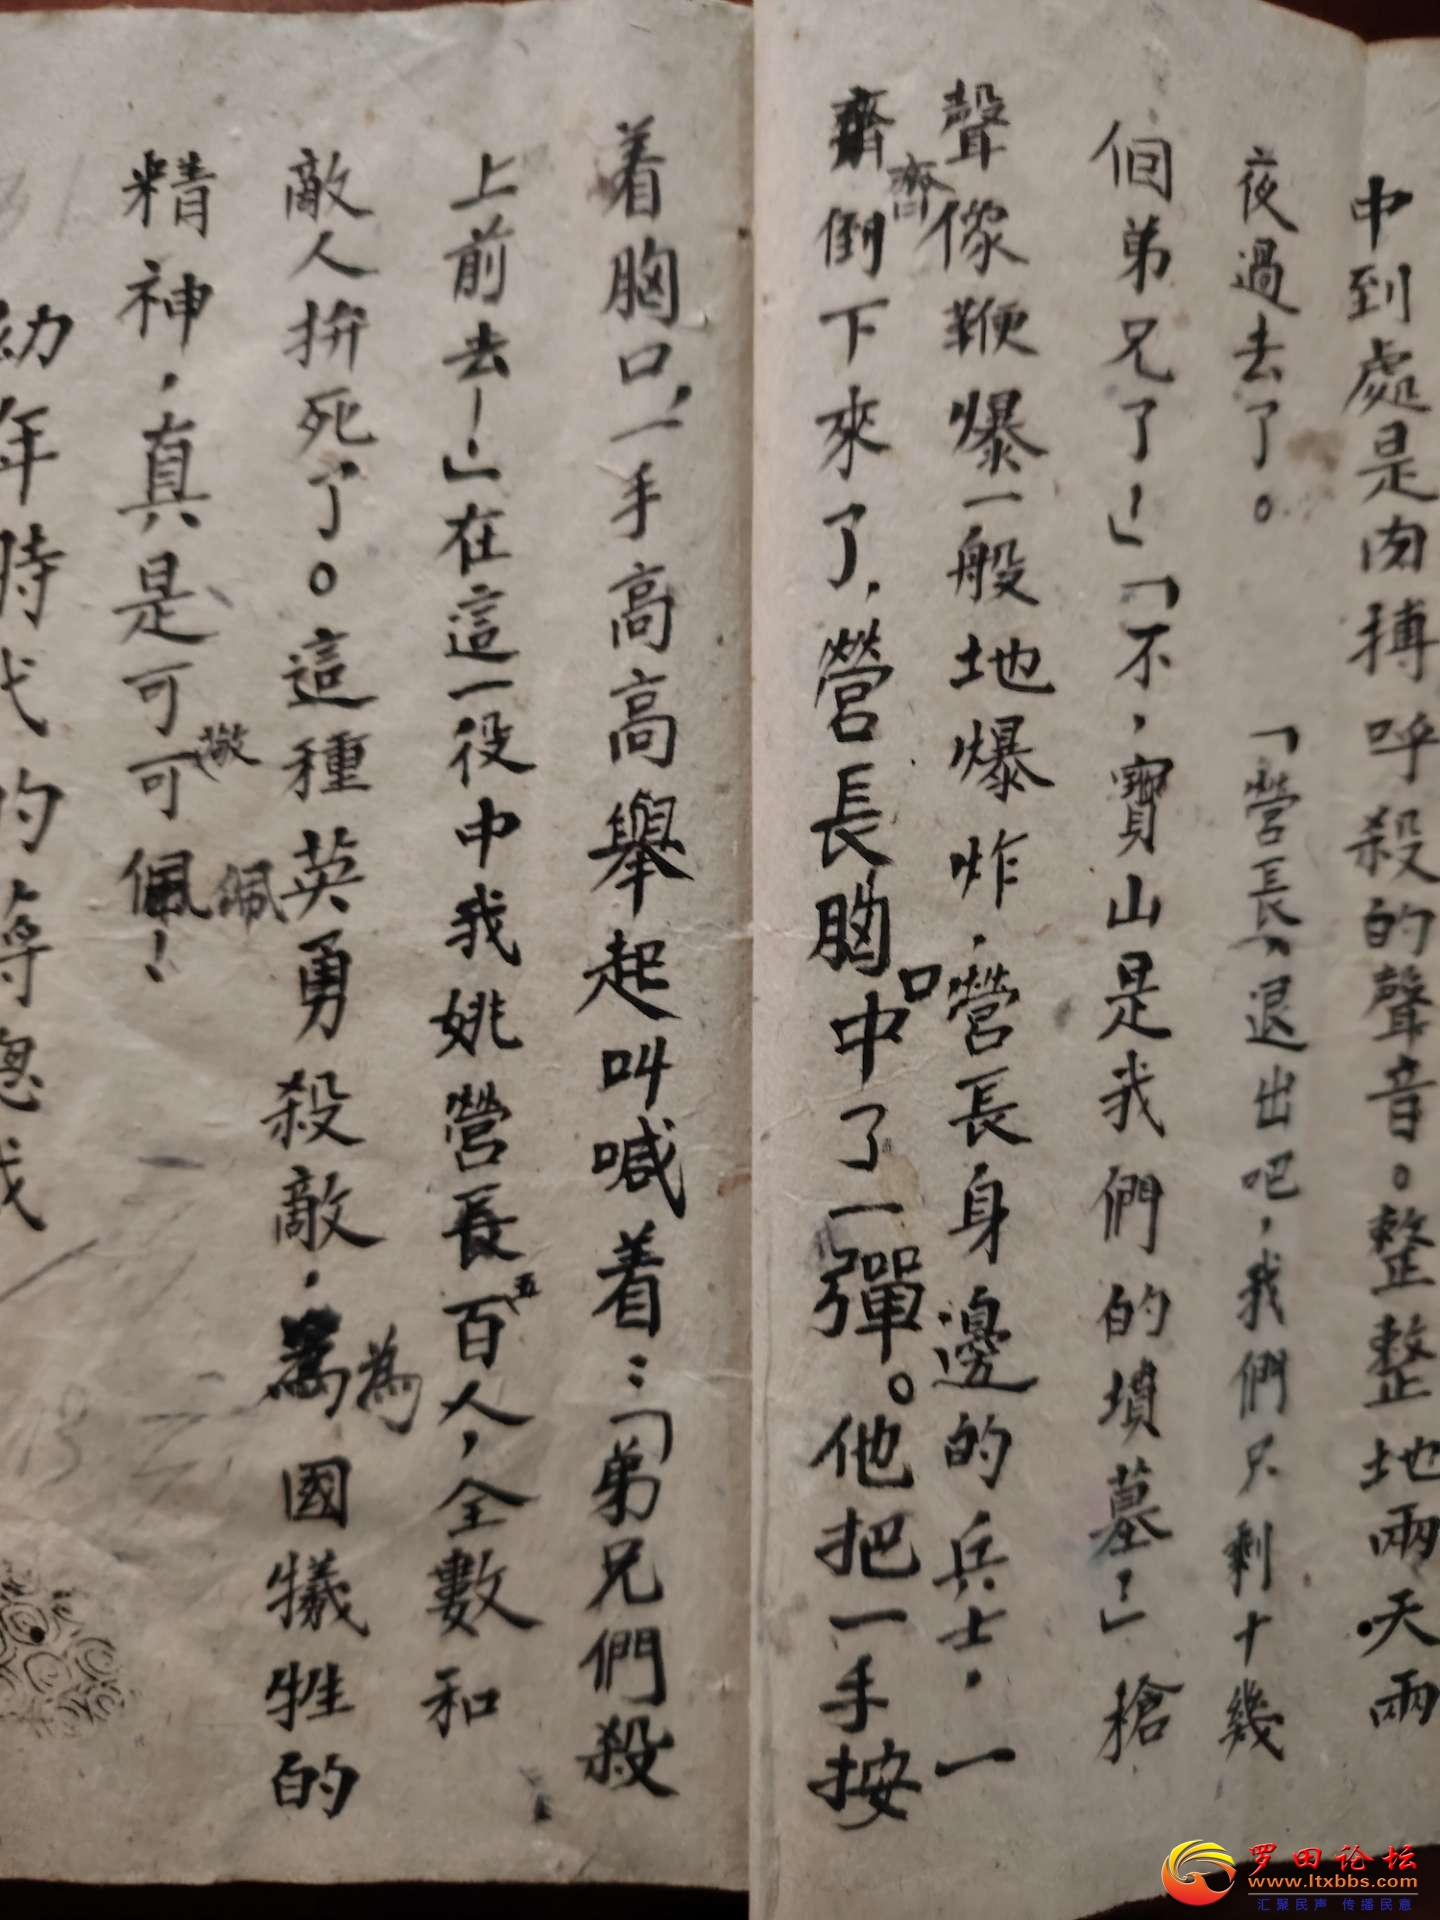 中到處是肉搏呼殺的聲音。整整地兩天兩
夜過去了。「營長，退出吧，我們只剩十幾
個弟兄了！」「不，寶山是我們的墳墓！」槍
聲像鞭爆一般地爆炸，營長身邊的兵士，一
齊
齊倒下來了，營長胸口中了一彈。他把一手按
着胸口，一手高高舉起叫喊着：「弟兄們殺
上前去！」在這一役中我姚營長五百人，全數和
敵人拚死了。這種英勇殺敵，為國犧牲的
為
精神，真是可可敬佩！
佩
幼年時代的蔣總裁
罗田论坛
www.ltxbbs.com
汇聚民声 传播民意